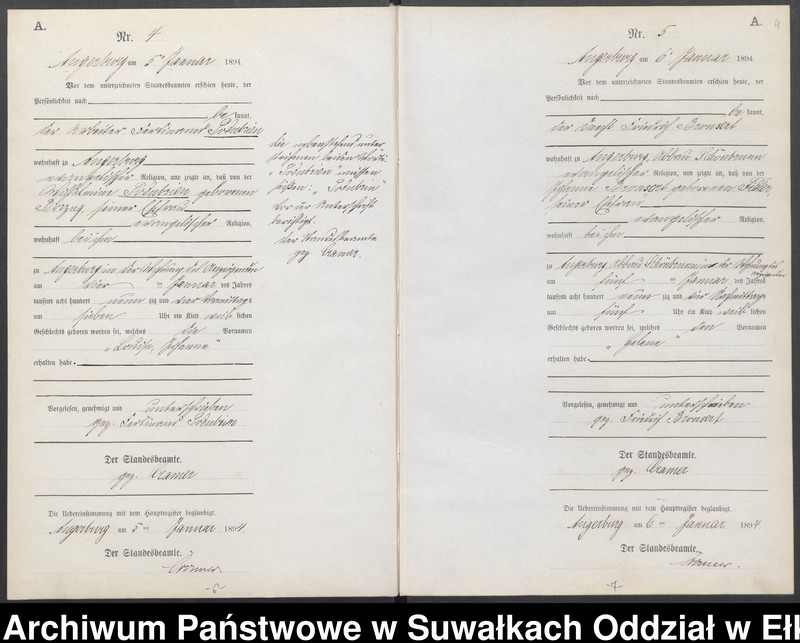 A.
Nr. 4
Angerburg am 5ten Januar 1894
Vor dem unterzeichneten Standesbeamten erschien heute, der
Persönlichkeit nach
be kannt,
der Arbeiter Ferdinand
wohnhaft zu Angerburg
evangelischer Religion, und zeigte an, daß von der
Wilhelmine geborenen
seiner Ehefrau
evangelischer Religion,
wohnhaft bei ihm
zu Angerburg in der Wohnung des Anzeigenden
am vier ten Januar des Jahres
tausend acht hundert neun zig und vier Vormittags
um sieben Uhr ein Kind weib lichen
Geschlechts geboren worden sei, welches die Vornamen
"Louise, Johanna"
erhalten habe.
Vorgelesen, genehmigt und unterschrieben
gez. Ferdinand
Der Standesbeamte.
gez. Cramer
Die Uebereinstimmung mit dem Hauptregister beglaubigt.
Angerburg am 5ten Januar 1894.
Der Standesbeamte.
Cramer.
die nebenstehend unter
müssen
heißen:
vor der Unterschrift
berichtigt.
der Standesbeamte
gez. Cramer.
A.
4
Nr. 5
Angerburg am 6ten Januar 1894
Vor dem unterzeichneten Standesbeamten erschien heute, der
Persönlichkeit nach
be kannt,
der Friedrich
wohnhaft zu Angerburg, Abbau Schönbrunn
evangelischer Religion, und zeigte an, daß von der
Johanna geborenen
seiner Ehefrau
evangelischer Religion,
wohnhaft bei ihm
zu Angerburg, Abbau Schönbrunn in der Wohnung des
Anzeigenden
am fünf ten Januar des Jahres
tausend acht hundert neun zig und vier Nachmittags
um fünf Uhr ein Kind weib lichen
Geschlechts geboren worden sei, welches den Vornamen
"Helene"
erhalten habe.
Vorgelesen, genehmigt und unterschrieben
gez. Friedrich
Der Standesbeamte.
gez. Cramer
Die Uebereinstimmung mit dem Hauptregister beglaubigt.
Angerburg am 6ten Januar 1894
Der Standesbeamte.
Cramer.
Archiwum Państwowe w Suwałkach Oddział w Eł